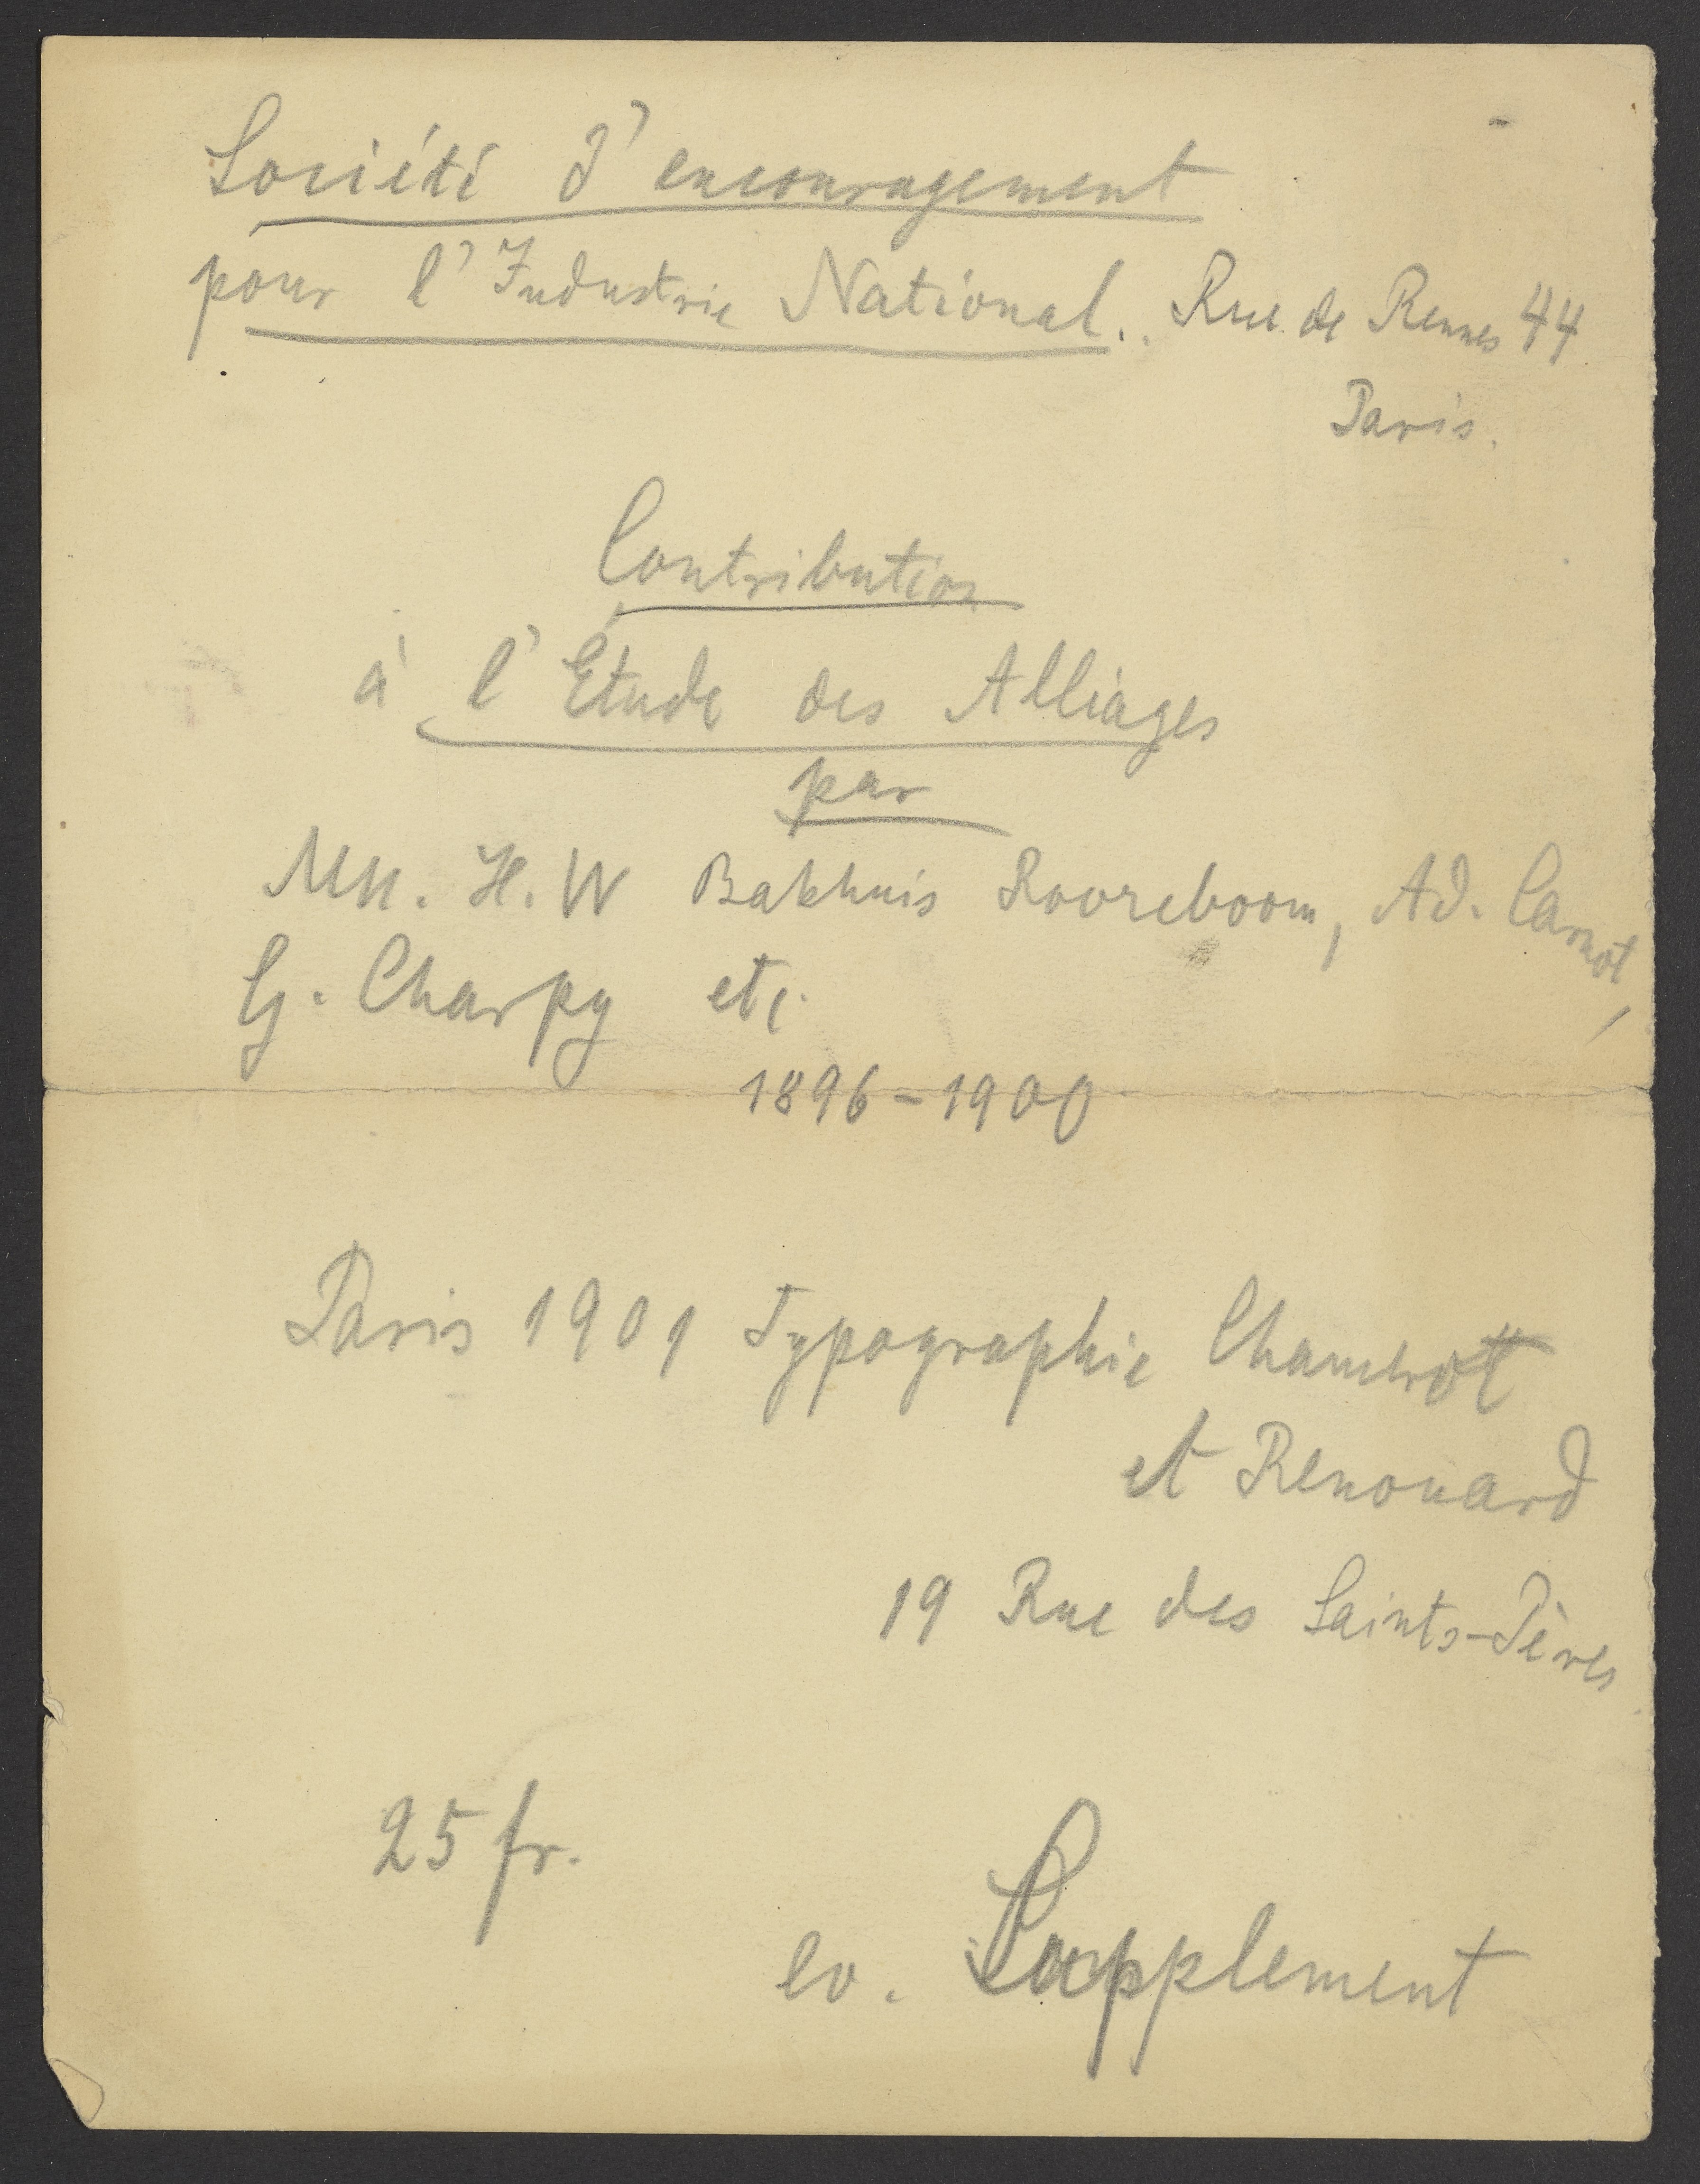 Société d'encouragement
pour l'Industrie National.. Rue de Rennes 44
Paris.
Contribution
à l'Étude des Alliages
par
MM. H. W Bakhuis Roozeboom, Ad. Carnot,
G. Charpy etc.
1896-1900
Paris 1901 Typographie Chamerot
et Renouard
19 Rue des Saints-Pères
25 fr.
ev. Supplement